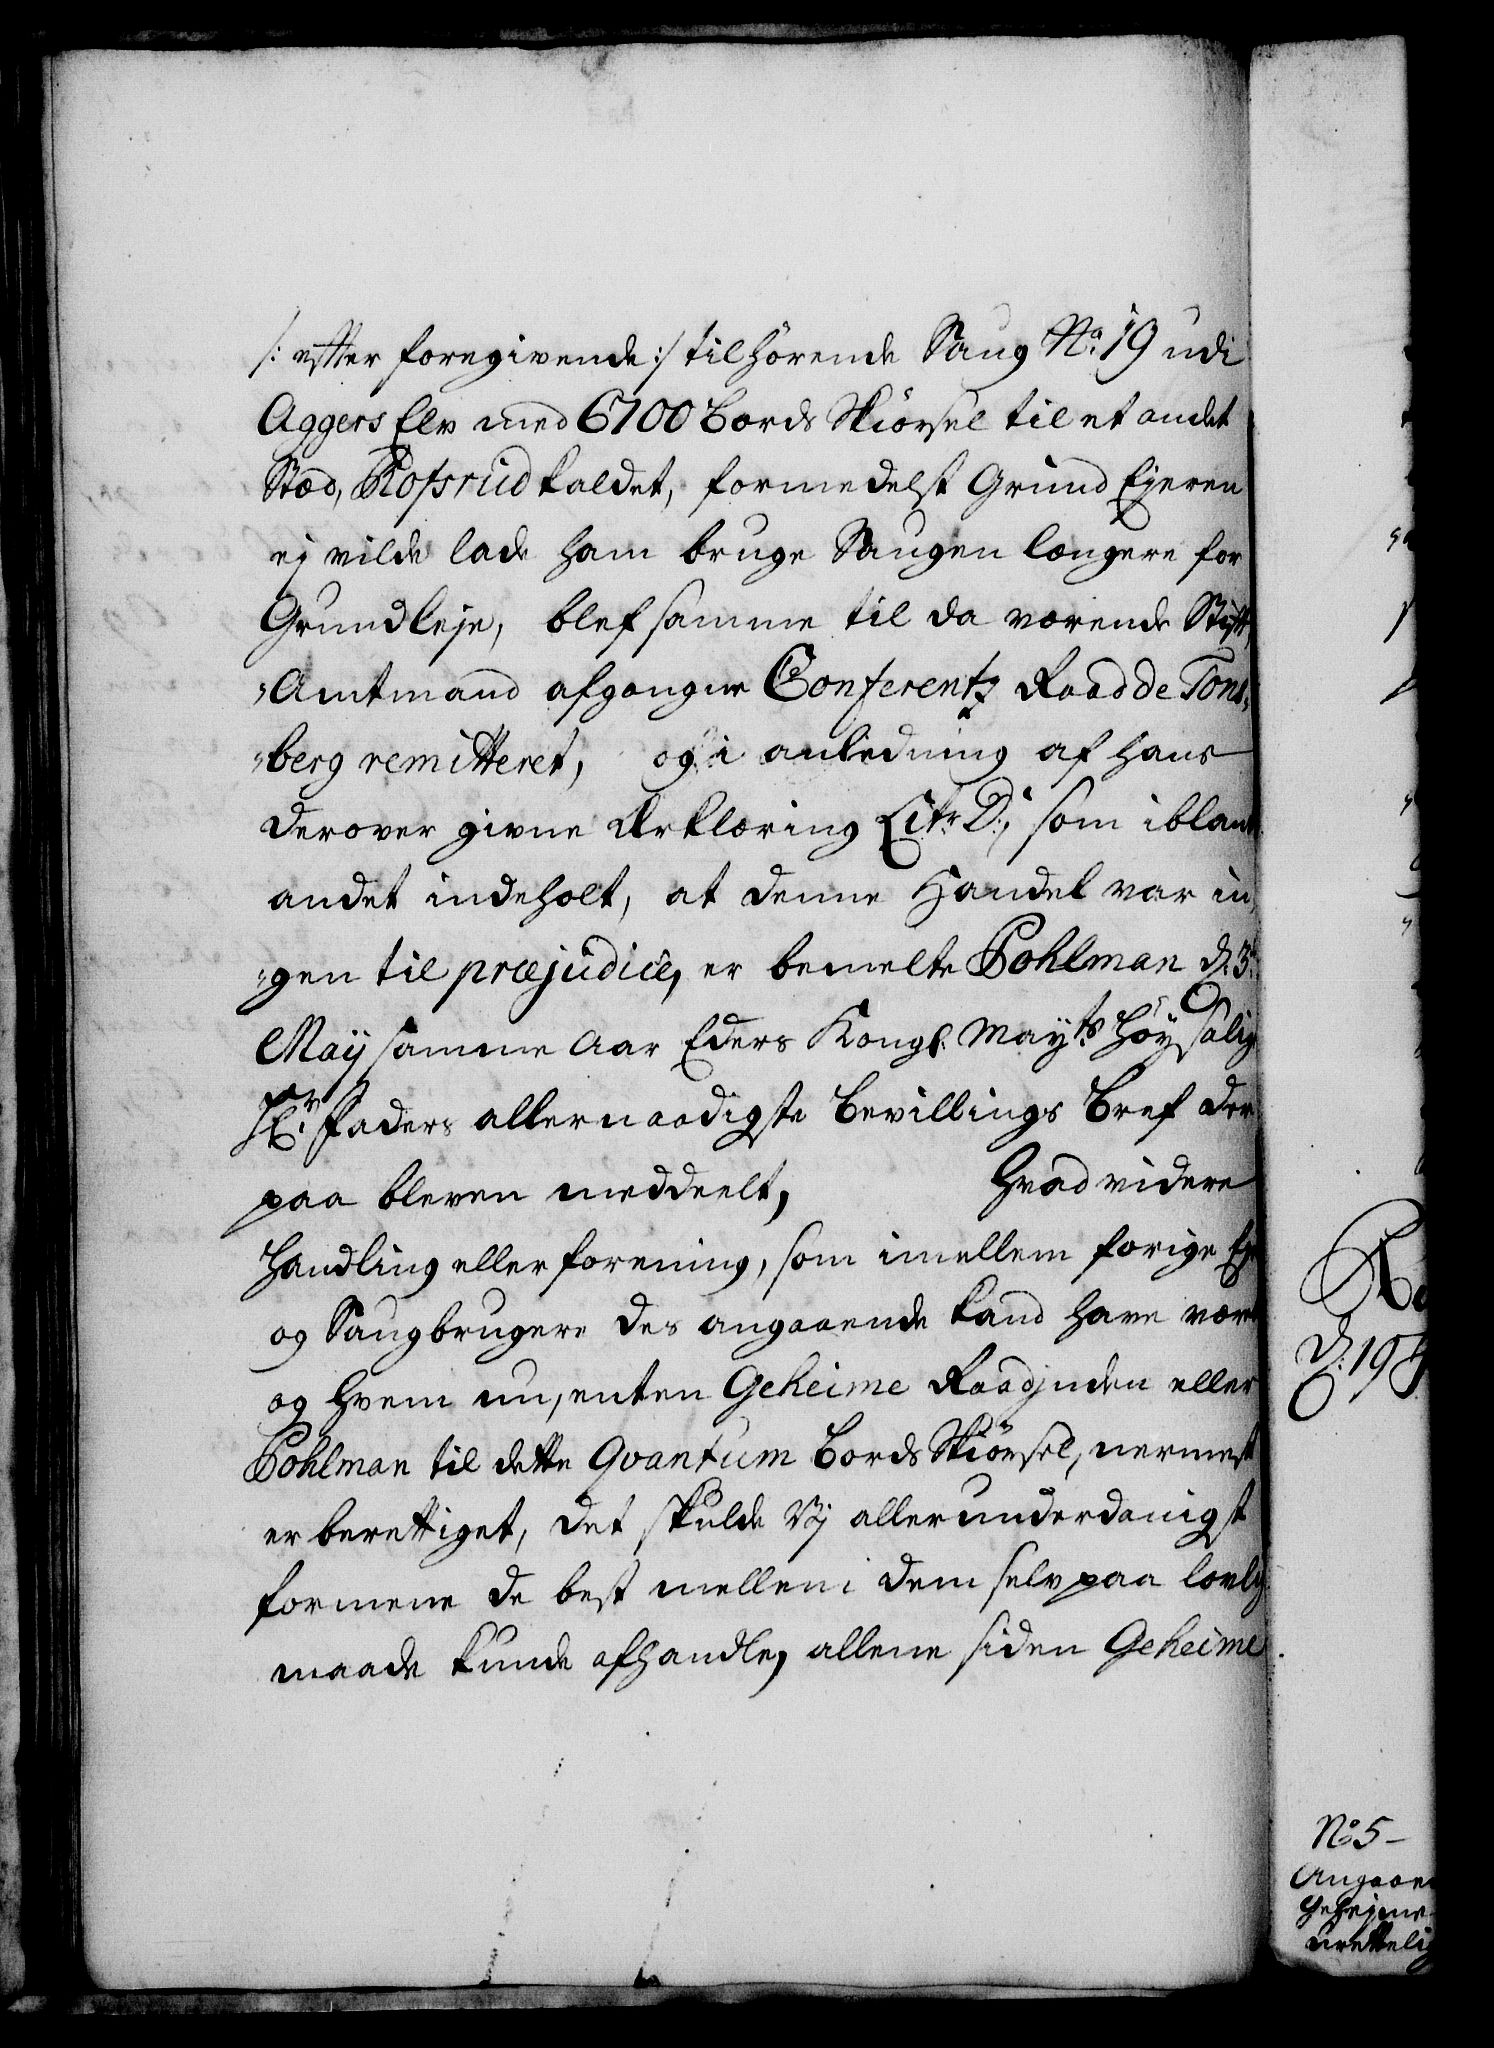 /: efter foregivende :/ tilhørende Saug No. 19 udi
Aggers Elv med 6700 bords Skiørsel til et andet
Stæd, Rofsrud kaldet, formedelst Grund Ejeren
ej vilde lade ham bruge Saugen længere for
Grundleje, blef samme til da værende Stift,
„Amtmand afgangne Conferentz Raad de Tons„
„berg remitteret, og i anledning af hans
derover givne Erklæring Litr. D:, som iblant
andet indeholt, at denne Handel var in„
„gen til præjudice, er bemelte Pohlman d: 3t.
Maij samme Aar Eders Kongl. Mayts. Høysalig
Hr. Faders allernaadigste bevillings bref der
paa bleven meddeelt, Hvad videre
Handling eller forening, som imellem forige Eje
og Saugbrugere des angaaende kand have vært
og hvem nu, enten Geheime Raadjnden eller
Pohlman til dette Qvantum bords Skiørsel, nermest
er berettiget, det skulde Vij allerunderdanigst
formene de best mellem dem selv paa lovlig
maade kunde afhandle, allene siden Geheime
No. 5 -
Angaaen
Geheime
urettelig